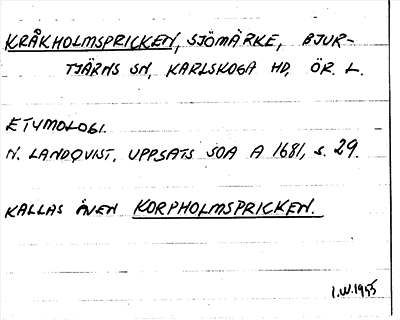 KRÅKHOLMSPRICKEN, SJÖMÄRKE, BJUR-
TJÄRNS SN, KARLSKOGA HD, ÖR. L.
ETYMOLOGI.
N. LANDQVIST, UPPSATS SOA A 1681, s. 29.
KALLAS ÄVEN KORPHOLMSPRICKEN.
I.W.1955